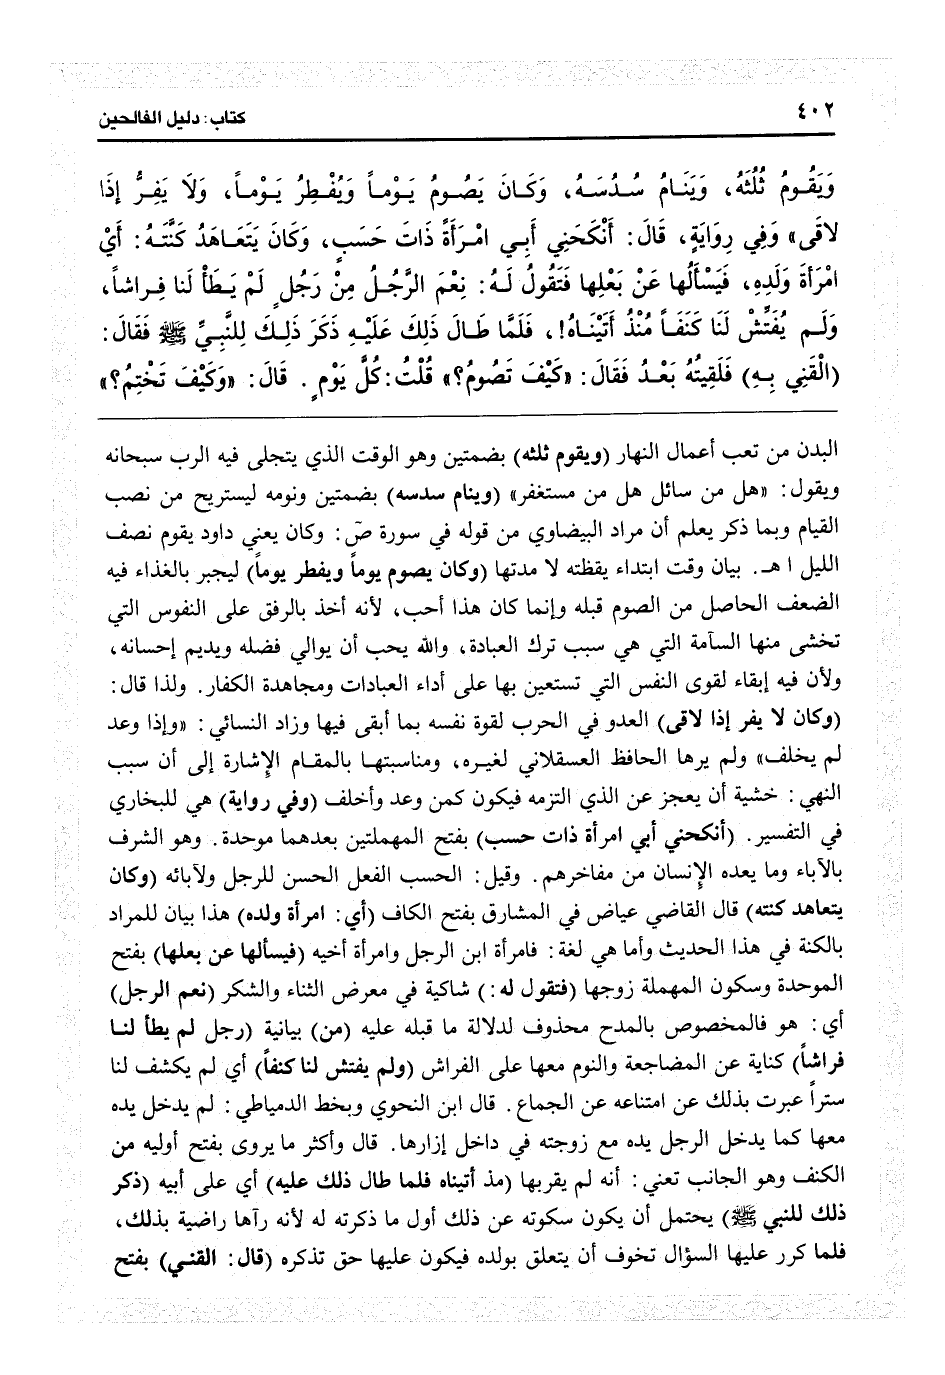 ٤٠٢
كتاب: دليل الفالحين
وَيَقُومُ ثُلُثَهُ، وَيَنَامُ سُدُسَهُ، وَكَانَ يَصُومُ يَوْماً وَيُفْطِرُ يَوْماً، وَلَا يَفِرُّ إِذَا
لاقَى» وَفِي رِوَايَةٍ، قَالَ: أَنْكَحَنِي أَبِي امْرَأَةً ذَاتَ حَسَبٍ، وَكَانَ يَتَعَاهَدُ كَنَّتَهُ: أَيْ
امْرَأَةَ وَلَدِهِ، فَيَسْأَلُها عَنْ بَعْلِها فَتَقُولُ لَهُ: نِعْمَ الرَّجُلُ مِنْ رَجُلٍ لَمْ يَطَأْ لَنا فِراشاً،
وَلَم يُفَتِّشْ لَنَا كَنَفَاً مُنْذُ أَتَيْنَاهُ!، فَلَمَّا طَالَ ذَلِكَ عَلَيْهِ ذَكَرَ ذَلِكَ لِلنَّبِيِّ ﷺ فَقَالَ:
(الْقَنِي بِهِ) فَلَقِيتُهُ بَعْدُ فَقَالَ: «كَيْفَ تَصُومُ؟» قُلْتُ: كُلَّ يَوْمٍ. قَالَ: «وَكَيْفَ تَخْتِمُ؟»
البدن من تعب أعمال النهار (ويقوم ثلثه) بضمتين وهو الوقت الذي يتجلى فيه الرب سبحانه
ويقول: «هل من سائل هل من مستغفر» (وينام سدسه) بضمتين ونومه ليستريح من نصب
القيام وبما ذكر يعلم أن مراد البيضاوي من قوله في سورة صَ: وكان يعني داود يقوم نصف
الليل ا هـ. بيان وقت ابتداء يقظته لا مدتها (وكان يصوم يوماً ويفطر يوماً) ليجبر بالغذاء فيه
الضعف الحاصل من الصوم قبله وإنما كان هذا أحب، لأنه أخذ بالرفق على النفوس التي
تخشى منها السآمة التي هي سبب ترك العبادة، والله يحب أن يوالي فضله ويديم إحسانه،
ولأن فيه إبقاء لقوى النفس التي تستعين بها على أداء العبادات ومجاهدة الكفار. ولذا قال:
(وكان لا يفر إذا لاقى) العدو في الحرب لقوة نفسه بما أبقى فيها وزاد النسائي: «وإذا وعد
لم يخلف» ولم يرها الحافظ العسقلاني لغيره، ومناسبتها بالمقام الإشارة إلى أن سبب
النهي: خشية أن يعجز عن الذي التزمه فيكون كمن وعد وأخلف (وفي رواية) هي للبخاري
في التفسير. (أنكحني أبي امرأة ذات حسب) بفتح المهملتين بعدهما موحدة. وهو الشرف
بالآباء وما يعده الإنسان من مفاخرهم. وقيل: الحسب الفعل الحسن للرجل ولآبائه (وكان
يتعاهد كنته) قال القاضي عياض في المشارق بفتح الكاف (أي: امرأة ولده) هذا بيان للمراد
بالكنة في هذا الحديث وأما هي لغة: فامرأة ابن الرجل وامرأة أخيه (فيسألها عن بعلها) بفتح
الموحدة وسكون المهملة زوجها (فتقول له:) شاكية في معرض الثناء والشكر (نعم الرجل)
أي: هو فالمخصوص بالمدح محذوف لدلالة ما قبله عليه (من) بيانية (رجل لم يطأ لنا
فراشاً) كناية عن المضاجعة والنوم معها على الفراش (ولم يفتش لنا كنفاً) أي لم يكشف لنا
ستراً عبرت بذلك عن امتناعه عن الجماع. قال ابن النحوي وبخط الدمياطي: لم يدخل يده
معها كما يدخل الرجل يده مع زوجته في داخل إزارها. قال وأكثر ما يروى بفتح أوليه من
الكنف وهو الجانب تعني: أنه لم يقربها (مذ أتيناه فلما طال ذلك عليه) أي على أبيه (ذكر
ذلك للنبي ﷺ) يحتمل أن يكون سكوته عن ذلك أول ما ذكرته له لأنه رآها راضية بذلك،
فلما كرر عليها السؤال تخوف أن يتعلق بولده فيكون عليها حق تذكره (قال: القني) بفتح